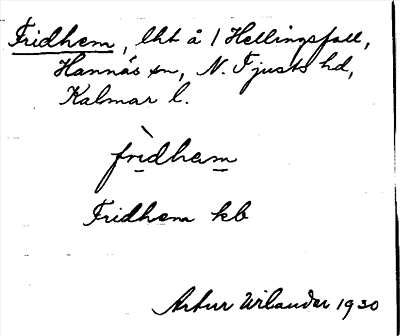 Fridhem, lht å 1 Hellingsfall,
Hannäs sn, N. Tjusts hd,
Kalmar l.
frìdhem
Fridhem kb
Artur Wilander 1930